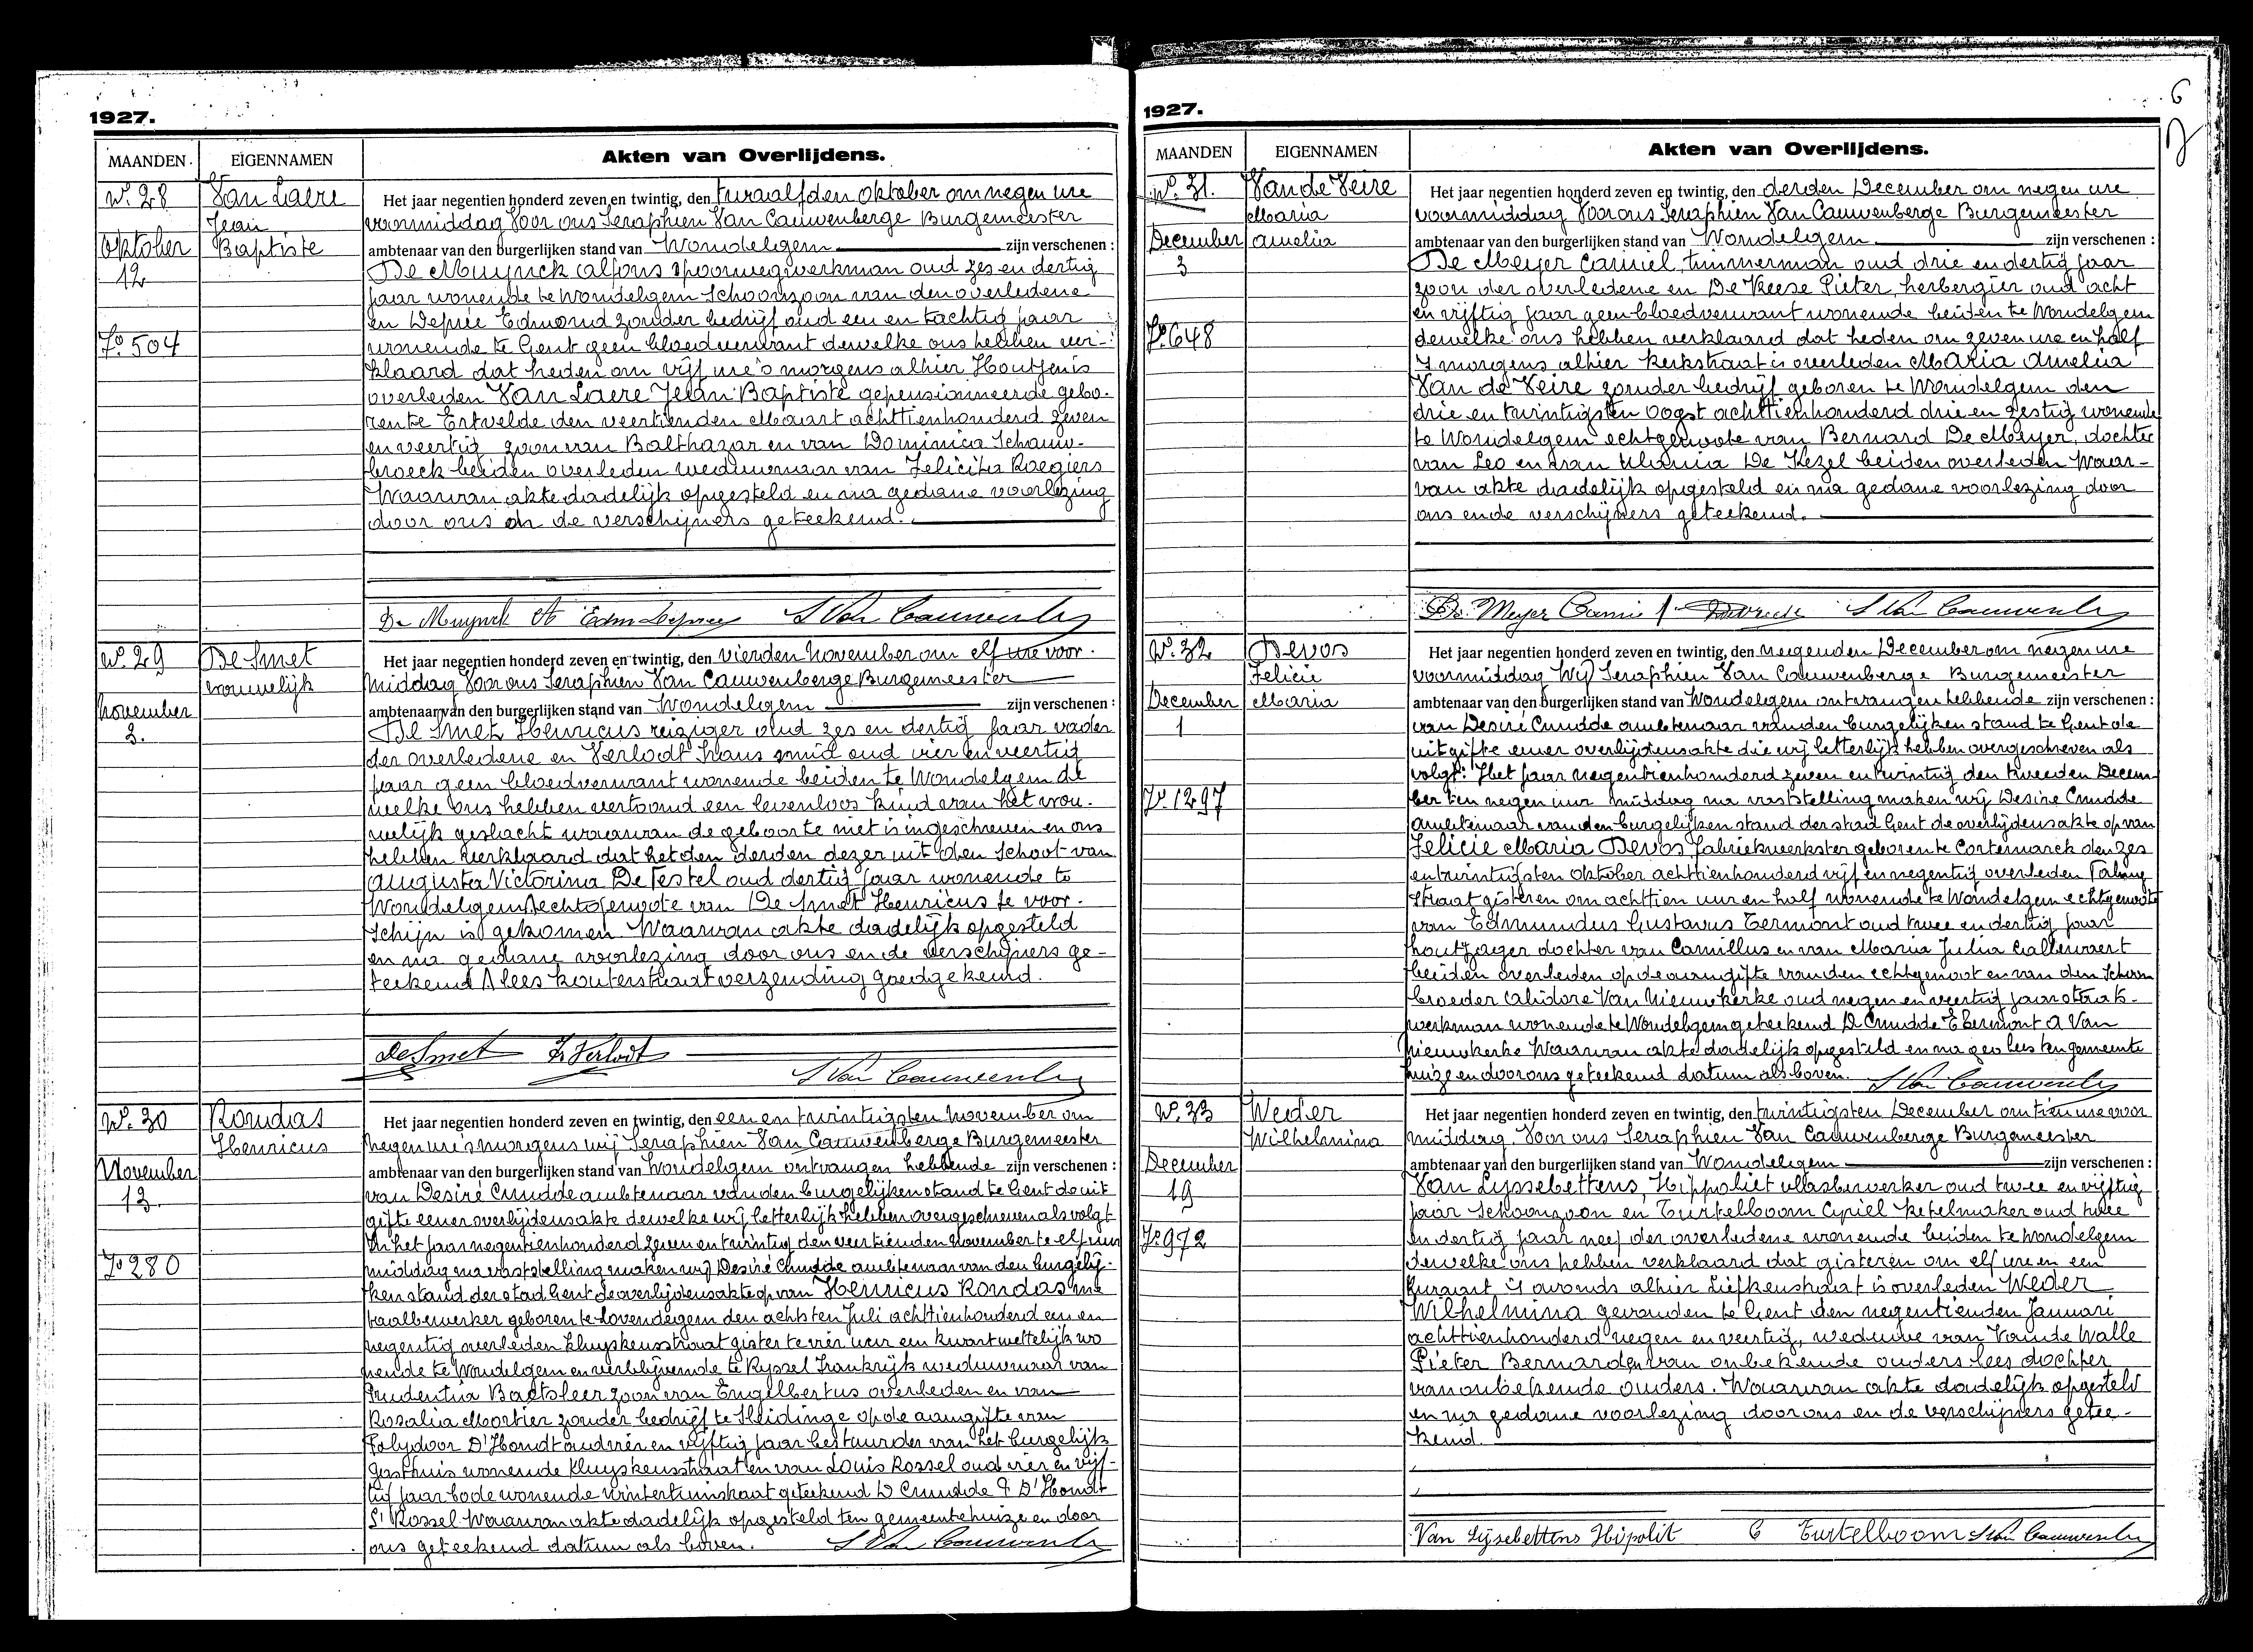 1927.
MAANDEN. EIGENNAMEN Akten van Overlijdens.
No. 28 Van Laere Het jaar negentien honderd zeven en twintig, den twaalfden oktober om negen ure
Jean voormiddag Voor ons Seraphien Van Cauwenberge Burgemeester
Oktober Baptiste ambtenaar van den burgerlijken stand van Wondelgem zijn verschenen :
12 De Muynck alfons spoorwegwerkman oud zes en dertig
jaar wonende te Wondelgem Schoonzoon van den overledene
en Deprée Edmond zonder bedrijf oud een en tachtig jaar
Fo. 504 wonende te Gent geen bloedverwant dewelke ons hebben ver-
klaard dat heden om vijf ure 's morgens alhier Houtjen is
overleden Van Laere Jean Baptiste gepensionneerde gebo-
ren te Ertvelde den veertienden Maart achttienhonderd zeven
en veertig zoon van Balthazar en van Dominica Schauw-
broeck beiden overleden weduwnaar van Felicita Roegiers
Waarvan akte dadelijk opgesteld en na gedane voorlezing
door ons en de verschijners geteekend.
De Muynck A Edm Deprée S Van Cauwenberge
No. 29 De Smet Het jaar negentien honderd zeven en twintig, den vierden November om elf ure voor-
vrouwelijk middag Voor ons Seraphien Van Cauwenberge Burgemeester
November ambtenaar van den burgerlijken stand van Wondelgem zijn verschenen :
3. De Smet Henricus reiziger oud zes en dertig jaar vader
der overledene en Verlodt Frans smid oud vier en veertig
jaar geen bloedverwant wonende beiden te Wondelgem de
welke ons hebben vertoond een levenloos kind van het vrou-
welijk geslacht waarvan de geboorte niet is ingeschreven en ons
hebben verklaard dat het den derden dezer uit den Schoot van
Augusta Victorina De Testel oud dertig jaar wonende te
Wondelgem echtgenoote van De Smet Henricus te voor-
schijn is gekomen Waarvan akte dadelijk opgesteld
en na gedane voorlezing door ons en de verschijners ge-
teekend lees kouterstraat verzending goedgekeurd.
De Smet Fr Verlodt
S Van Cauwenberge
No. 30 Rondas Het jaar negentien honderd zeven en twintig, den een en twintigsten November om
Henricus negen ure 's morgens wij Seraphien Van Cauwenberge Burgemeester
November ambtenaar van den burgerlijken stand van Wondelgem ontvangen hebbende zijn verschenen :
13. van Desiré Cnudde ambtenaar van den burgelijken stand te Gent de uit
gifte eener overlijdensakte dewelke wij letterlijk hebben overgeschreven als volgt
In het jaar negentienhonderd zeven en twintig den veertienden November te elf uur
Fo 280 middag na vaststelling maken wij Desiré Cnudde ambtenaar van den burgelij-
ken stand der stad Gent de overlijdensakte op van Henricus Rondas me
taalbewerker geboren te Lovendegem den achtsten Juli achttienhonderd een en
negentig overleden Kluyskensstraat gister te vier uur een kwart wettelijk wo
nende te Wondelgem en verblijvende te Ryssel Frankrijk weduwnaar van
Prudentia Baetsleer zoon van Engelbertus overleden en van
Rosalia Mortier zonder bedrijf te Sleidinge op de aangifte van
Polydoor D'Hondt oud vier en vijftig jaar bestuurder van het burgelijk
Gasthuis wonende Kluyskensstraat en van Louis Rossel oud vier en vijf-
tig jaar bode wonende wintertuinstraat geteekend D Cnudde P D'Hondt
L Rossel Waarvan akte dadelijk opgesteld ten gemeentehuize en door
ons geteekend datum als boven. S Van Cauwenberge
6
1927.
MAANDEN EIGENNAMEN Akten van Overlijdens.
No. 31. Van de Veire Het jaar negentien honderd zeven en twintig, den derden December om negen ure
Maria voormiddag Voor ons Seraphien Van Cauwenberge Burgemeester
December Amelia ambtenaar van den burgerlijken stand van Wondelgem zijn verschenen :
3 De Meyer Camiel timmerman oud drie en dertig jaar
zoon der overledene en De Keese Pieter, herbergier oud acht
en vijftig jaar geen bloedverwant wonende beiden te Wondelgem
Fo. 648 dewelke ons hebben verklaard dat heden om zeven ure en half
's morgens alhier Kerkstraat is overleden Maria Amelia
Van de Veire zonder bedrijf geboren te Wondelgem den
drie en twintigsten Oogst achttienhonderd drie en zestig wonende
te Wondelgem echtgenoote van Bernard De Meyer, dochter
van Leo en van Maria De Kezel beiden overleden Waar-
van akte dadelijk opgesteld en na gedane voorlezing door
ons en de verschijners geteekend.
De Meyer Camiel S Van Cauwenberge
No. 32 Devos Het jaar negentien honderd zeven en twintig, den negenden December om negen ure
Felicie voormiddag Wij Seraphien Van Cauwenberge Burgemeester
December Maria ambtenaar van den burgerlijken stand van Wondelgem ontvangen hebbende zijn verschenen :
1 van Desiré Cnudde ambtenaar van den burgelijken stand te Gent de
uitgifte eener overlijdensakte die wij letterlijk hebben overgeschreven als
volgt: Het jaar negentienhonderd zeven en twintig den tweeden Decem-
Fo. 1297 ber ten negen uur middag na vaststelling maken wij Desiré Cnudde
ambtenaar van den burgelijken stand der stad Gent de overlijdensakte op van
Felicie Maria Devos fabriekwerkster geboren te Cortemarck den zes
en twintigsten Oktober achttienhonderd vijf en negentig overleden
straat gisteren om achttien uur en half wonende te Wondelgem echtgenoote
van Edmundus Gustavus Termont oud twee en dertig jaar
houtzager dochter van Camillus en van Maria Julia Callewaert
beiden overleden op de aangifte van den echtgenoot en van den Schoon
broeder Alidore Van Nieuwkerke oud negen en veertig jaar staats-
werkman wonende te Wondelgem geteekend D Cnudde E Termont A Van
Nieuwkerke Waarvan akte dadelijk opgesteld en na ten gemeente
huize en door ons geteekend datum als boven. S Van Cauwenberge
No. 33 Weder Het jaar negentien honderd zeven en twintig, den twintigsten December om tien ure voor
Wilhelmina middag. Voor ons Seraphien Van Cauwenberge Burgemeester
December ambtenaar van den burgerlijken stand van Wondelgem zijn verschenen :
19 Van Lyssebettens, Hippoliet vlasbewerker oud twee en vijftig
jaar Schoonzoon en Turtelboom Cyriel ketelmaker oud twee
Fo 972 en dertig jaar neef der overledene wonende beiden te Wondelgem
dewelke ons hebben verklaard dat gisteren om elf ure en een
kwaart 's avonds alhier Liefkenstraat is overleden Weder
Wilhelmina gevonden te Gent den negentienden Januari
achttienhonderd negen en veertig, weduwe van Van de Walle
Pieter Bernard en van onbekende ouders lees dochter
van onbekende ouders. Waarvan akte dadelijk opgesteld
en na gedane voorlezing door ons en de verschijners getee-
kend.
Van Lijsebettens Hipolit C Turtelboom S Van Cauwenberge